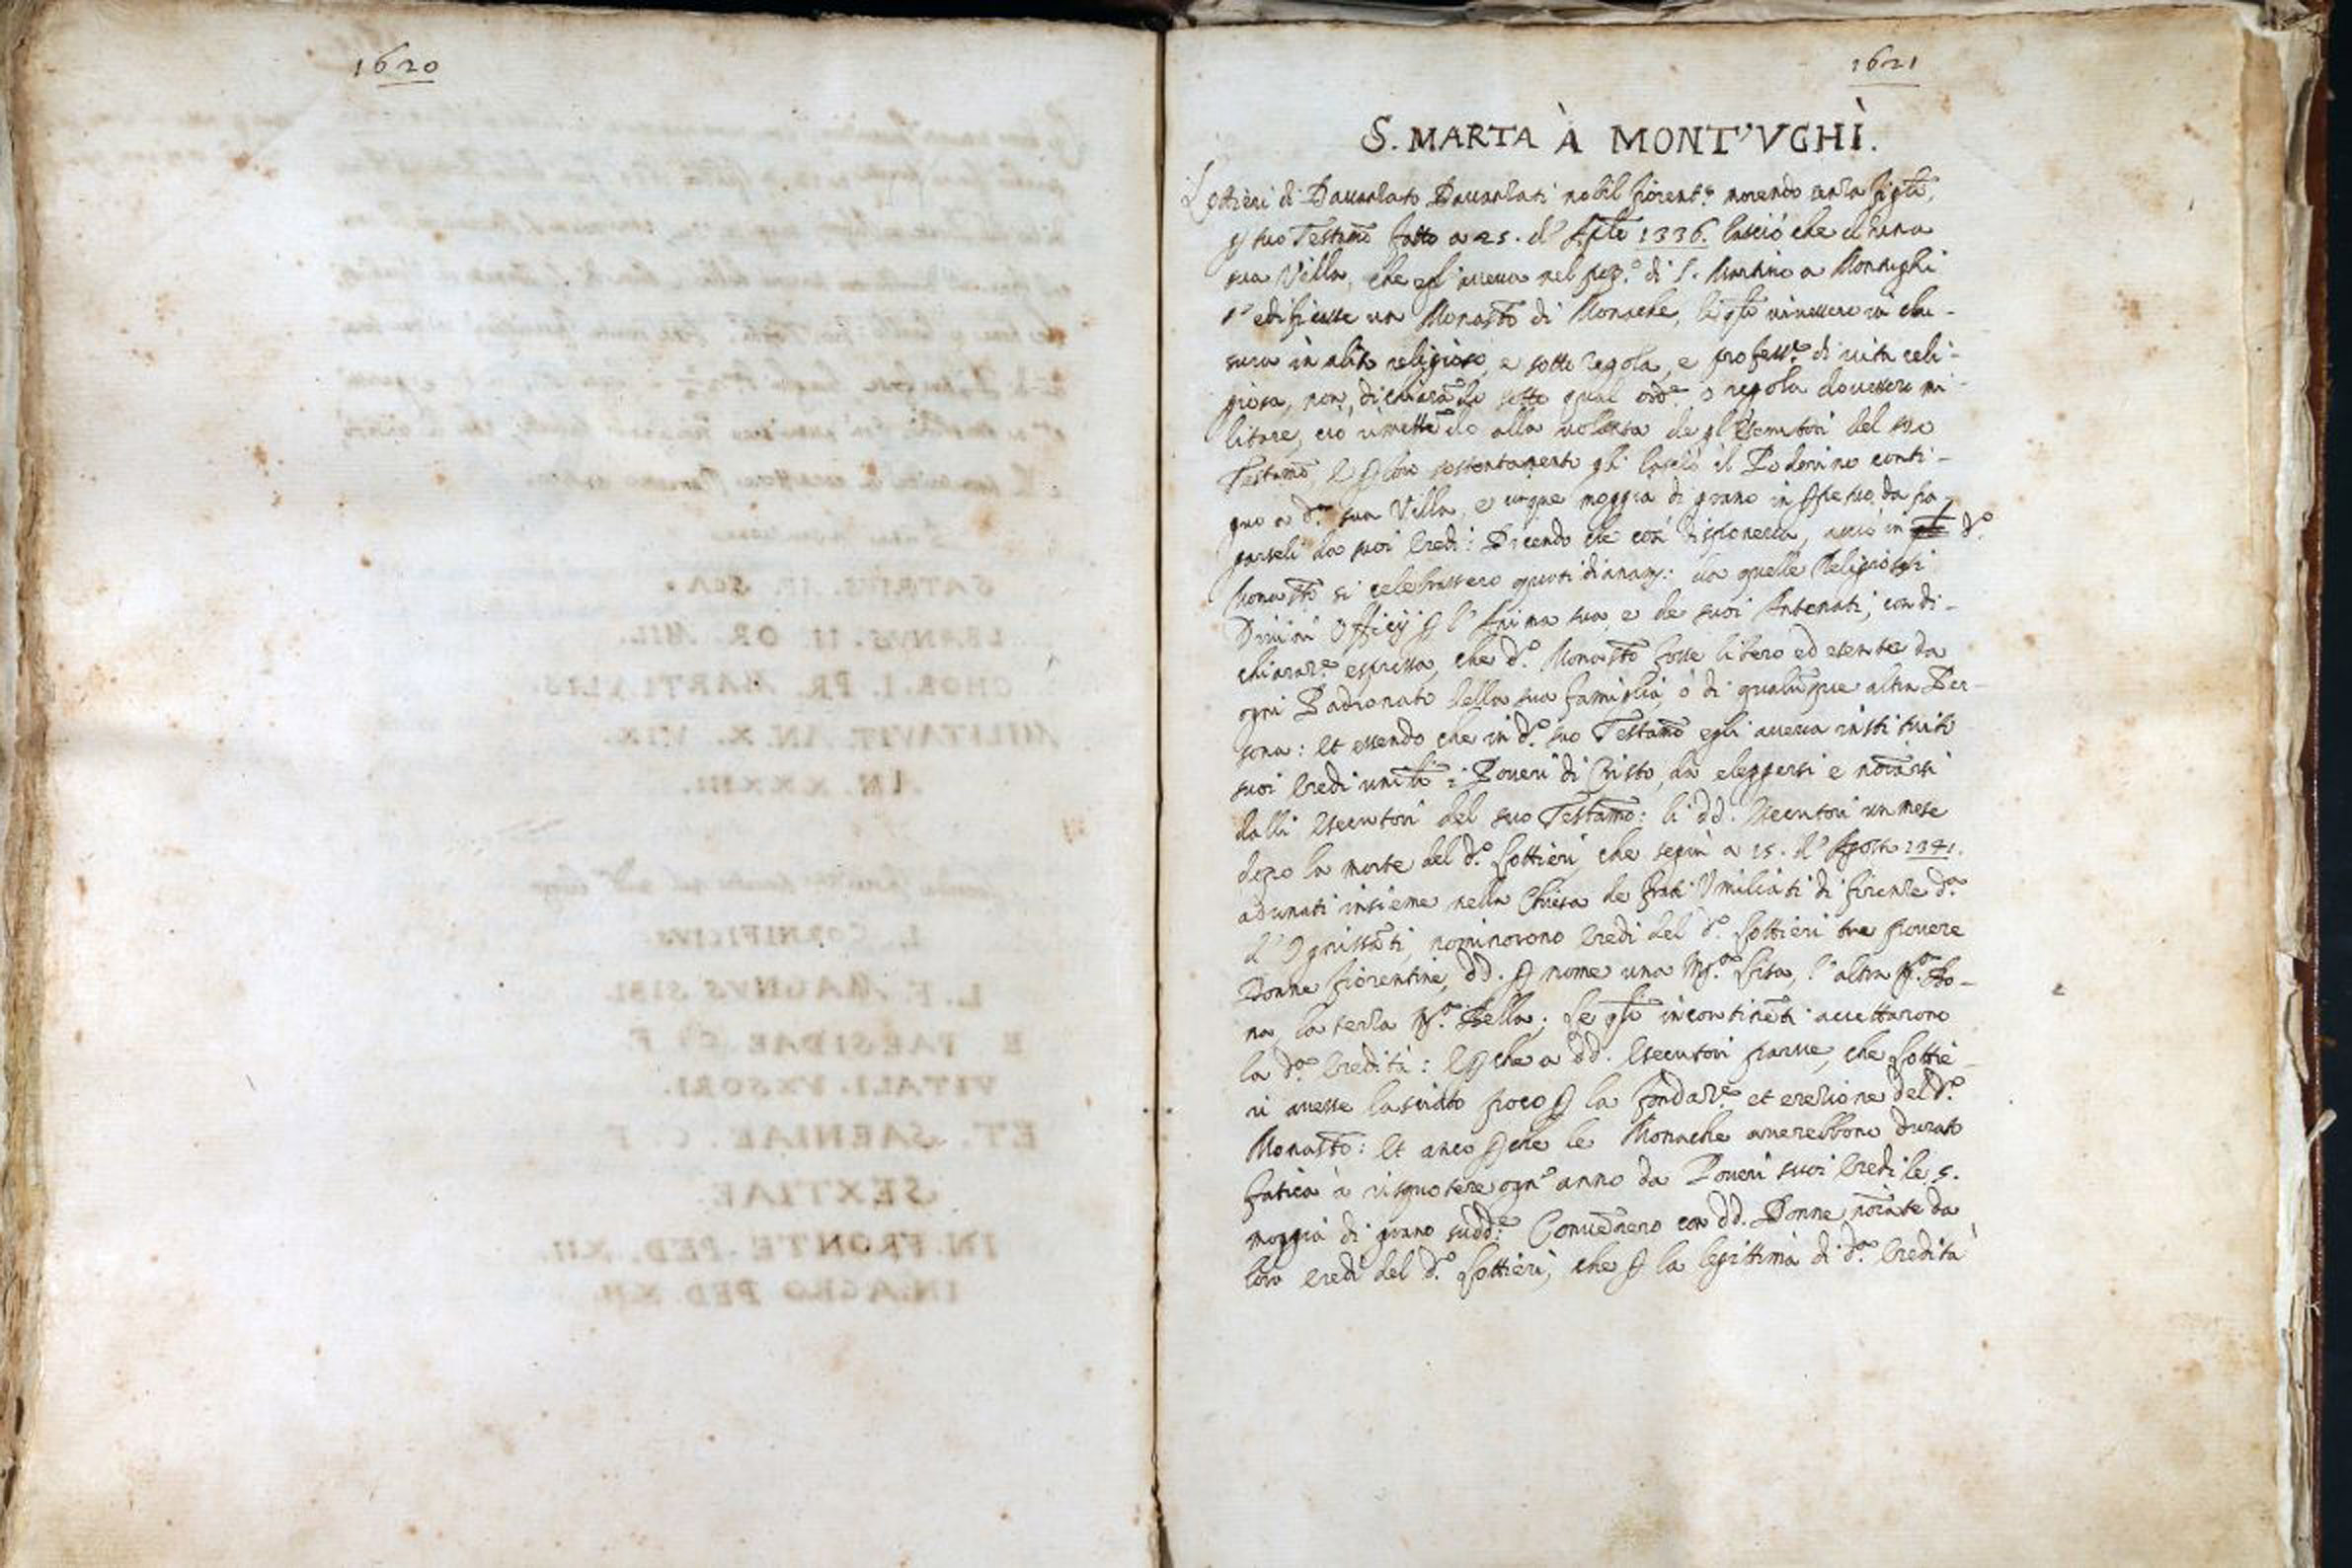 1620
1621
S. MARTA À MONT'VGHÌ.
Lottieri di Davanzato Davanzati nobil fiorent.º morendo senza figli,
suo Testamo fatto a 25. d' 1336. lasciò che di una
sua Villa, che egl'aveva nel pop.º di S. Martino a Montughi
s'edificasse un Monastº di Monache, le qli vivessero in clau-
sura in abito religioso, e sotto regola, e profess.e di vita reli-
giosa, non dichiarãdo sotto qual ord.e o regola dovessero mi-
litare, ciò rimettẽdo alla volontà de gl'Esecutori del suo
Testamo, e loro sostentamento gli lasciò il Poderino conti-
guo a d.a sua Villa, e cinque moggia di grano in da pa-
garseli da suoi Eredi: Dicendo che così disponeva, acciò in d.º
Monastº si celebrassero quotidianam: da quelle Religiose i
Divini Officij l'Anima sua e de suoi Antenati, con di-
chiaraz.e espressa, che d.º Monastº fosse libero ed esente da
ogni Padronato della sua famiglia, ò di qualũque altra Per-
sona: Et essendo che in d.º suo Testamo egli aveva instituito
suoi Eredi univli i Poveri di Cristo, da eleggersi e noiarsi
dalli Esecutori del suo Testamo: li dd. Esecutori un mese
dopo la morte del d.º Lottieri, che seguì a 15. d'Agosto 1341.
adunati insieme nella Chiesa de frati Vmiliati di firenze d.a
d'Ognissãti, nominorono Eredi del d.º Lottieri tre povere
Donne fiorentine, dd. nome una M.a Lisa, l'altra M.a Bo-
na, la terza M.a Bella; Le qli incontinẽti accettarono
la d.a Eredità: E che a dd. Esecutori parve, che Lottie-
ri avesse lasciato poco la fondaz.e et erezione del d.º
Monastº: Et anco che le Monache averebbono durato
fatica à risquotere ogn'anno da Poveri suoi Eredi le 5.
moggia di grano sudd.e Convẽnero con dd. Donne noiate da
loro eredi del d.º Lottieri, che la legittima di d.a Eredità